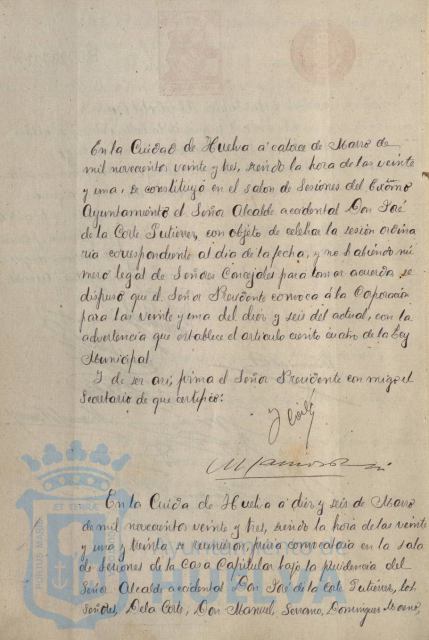 En la Cuidad de Huelva a catorce de Marzo de
mil novecientos veinte y tres, siendo la hora de las veinte
y una, se constituyó en el salon de Sesiones del Excmo
Ayuntamiento el Señor Alcalde accidental Don José
de la Corte Gutierrez, con objeto de celebrar la sesión ordina
ria correspondiente al dia de la fecha, y no habiendo nú
mero legal de Señores Concejales para tomar acuerdo se
dispuso que el Señor Presidente convoca á la Coporación
para las veinte y una del diez y seis del actual, con la
advertencia que establece el articulo ciento cuatro de la Ley
Municipal.
Y de ser asi; firma el Señor Presidente con migo el
Secretario de que certifico:
En la Cuida de Huelva a diez y seis de Marzo
de mil novecientos veinte y tres, siendo la hora de las veinte
y una y treinta se reunieron, previa convocatoria en la sala
de Sesiones de la Casa Capitular bajo la presidencia del
Señor Alcalde accidental Don José de la Corte Gutierrez, los
Señores, De la Corte, Don Manuel Soriano, Dominguez
AYUNTAMIENTO DE
HUELVA
PORTUS MARIS
ET TERRE